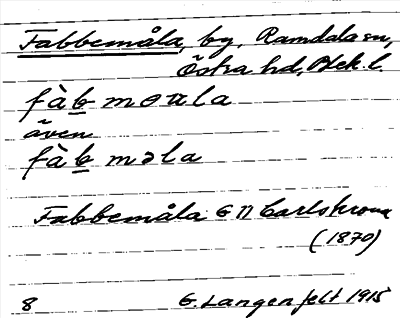 Fabbemåla, by, Ramdala sn,
Östra hd, Blek. l.
fàb mɵala
även
fàb məla
Fabbemåla GÖ Carlskrona
(1870)
8 G. Langenfelt 1915